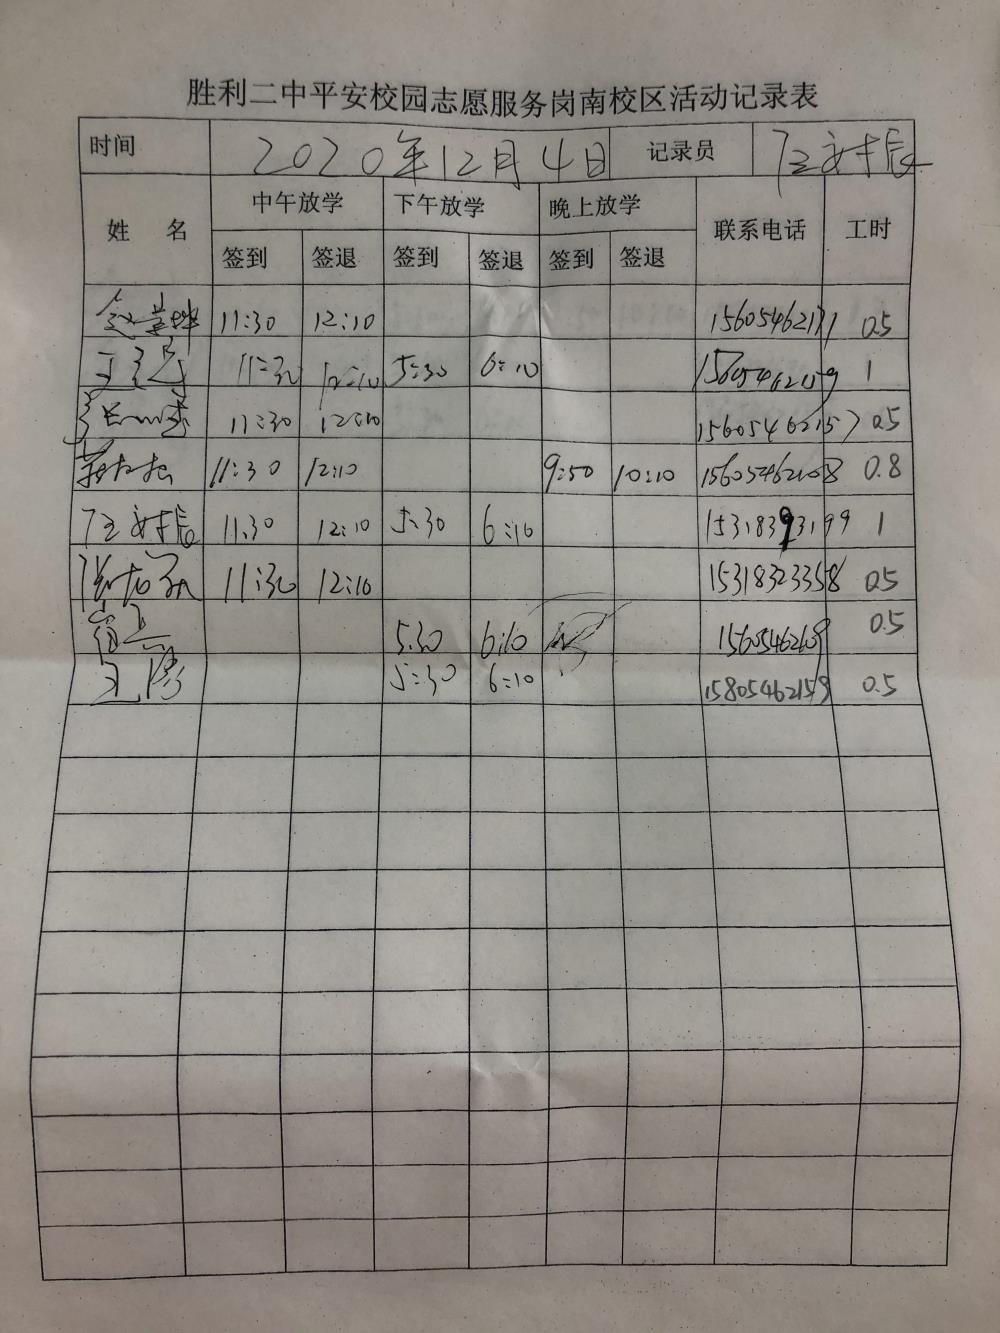 胜利二中平安校园志愿服务岗南校区活动记录表
时间 2020年12月4日 记录员
姓 名 中午放学 下午放学 晚上放学 联系电话 工时
签到 签退 签到 签退 签到 签退
11:30 12:10 15605462171 0.5
11:30 12:10 5:30 6:10 15605462159 1
11:30 12:10 15605462157 0.5
11:30 12:10 9:50 10:10 15605462108 0.8
11:30 12:10 5:30 6:10 15318393199 1
11:30 12:10 15318323358 0.5
5:30 6:10 0.5
5:30 6:10 15805462159 0.5